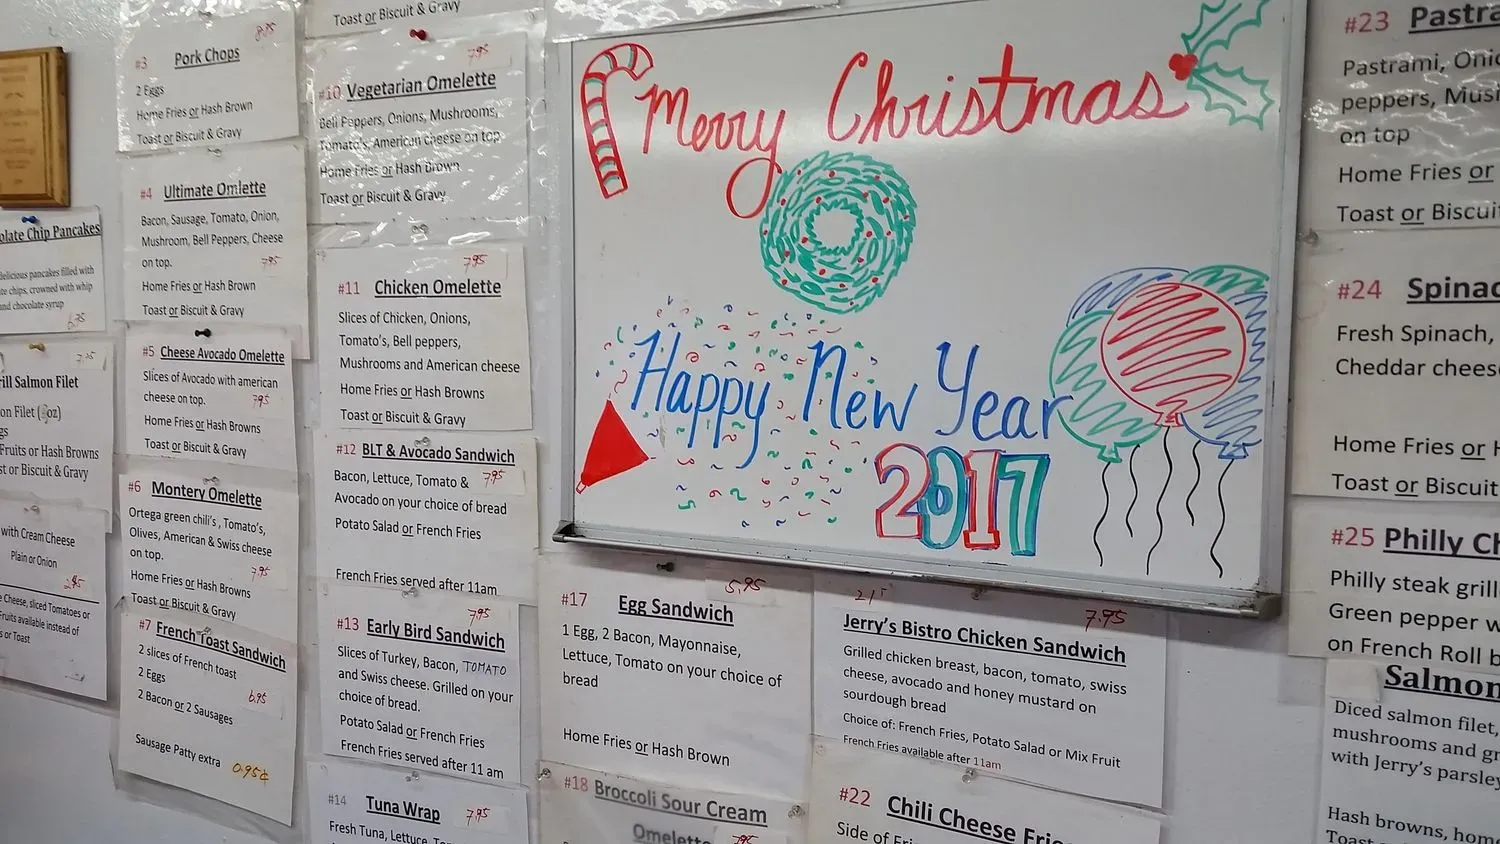 olate Chip Pancakes
delicious pancakes filled with
te chips, crowned with whip
nd chocolate syrup
6.75
7.75
rill Salmon Filet
on Filet (
gs
Fruits or Hash Browns
st or Biscuit & Gravy
with Cream Cheese
Plain or Onion
2.95
e Cheese, sliced Tomatoes or
Fruits available instead of
s or Toast
8.75
#3 Pork Chops
2 Eggs
Home Fries or Hash Brown
Toast or Biscuit & Gravy
#4 Ultimate Omlette
Bacon, Sausage, Tomato, Onion,
Mushroom, Bell Peppers, Cheese
on top. 7.95
Home Fries or Hash Brown
Toast or Biscuit & Gravy
#5 Cheese Avocado Omelette
Slices of Avocado with american
cheese on top. 7.95
Home Fries or Hash Brown
Toast or Biscuit & Gravy
#6 Montery Omelette
Ortega green chili's, Tomato's,
Olives, American & Swiss cheese
on top. 7.95
Home Fries or Hash Brown
Toast or Biscuit & Gravy
#7 French Toast Sandwich
2 slices of French toast
2 Eggs 6.95
2 Bacon or 2 Sausages
Sausage Patty extra 0.95¢
Toast or Biscuit & Gravy
7.95
#10 Vegetarian Omelette
Bell Peppers, Onions, Mushrooms,
Tomato's, American cheese on top
Home Fries or Hash Brown
Toast or Biscuit & Gravy
7.95
#11 Chicken Omelette
Slices of Chicken, Onions,
Tomato's, Bell peppers,
Mushrooms and American cheese
Home Fries or Hash Browns
Toast or Biscuit & Gravy
#12 BLT & Avocado Sandwich
Bacon, Lettuce, Tomato & 7.95
Avocado on your choice of bread
Potato Salad or French Fries
French Fries served after 11am
7.95
#13 Early Bird Sandwich
Slices of Turkey, Bacon, TOMATO
and Swiss cheese. Grilled on your
choice of bread.
Potato Salad or French Fries
French Fries served after 11 am
#14 Tuna Wrap 7.95
Fresh Tuna, Lettuce,
Merry Christmas
Happy New Year
2017
5.95
#17 Egg Sandwich
1 Egg, 2 Bacon, Mayonnaise,
Lettuce, Tomato on your choice of
bread
Home Fries or Hash Brown
#18 Broccoli Sour Cream
Omelette 7.95
7.95
Jerry's Bistro Chicken Sandwich
Grilled chicken breast, bacon, tomato, swiss
cheese, avocado and honey mustard on
sourdough bread
Choice of: French Fries, Potato Salad or Mix Fruit
French Fries available after 11am
#22 Chili Cheese Frie
Side of Fri
#23 Pastra
Pastrami, Onio
peppers, Mus
on top
Home Fries or
Toast or Biscuit
#24 Spinac
Fresh Spinach,
Cheddar cheese
Home Fries or H
Toast or Biscuit
#25 Philly Ch
Philly steak grill
Green pepper w
on French Roll b
Salmon
Diced salmon filet,
mushrooms and gr
with Jerry's parsley
Hash browns, home
Toast